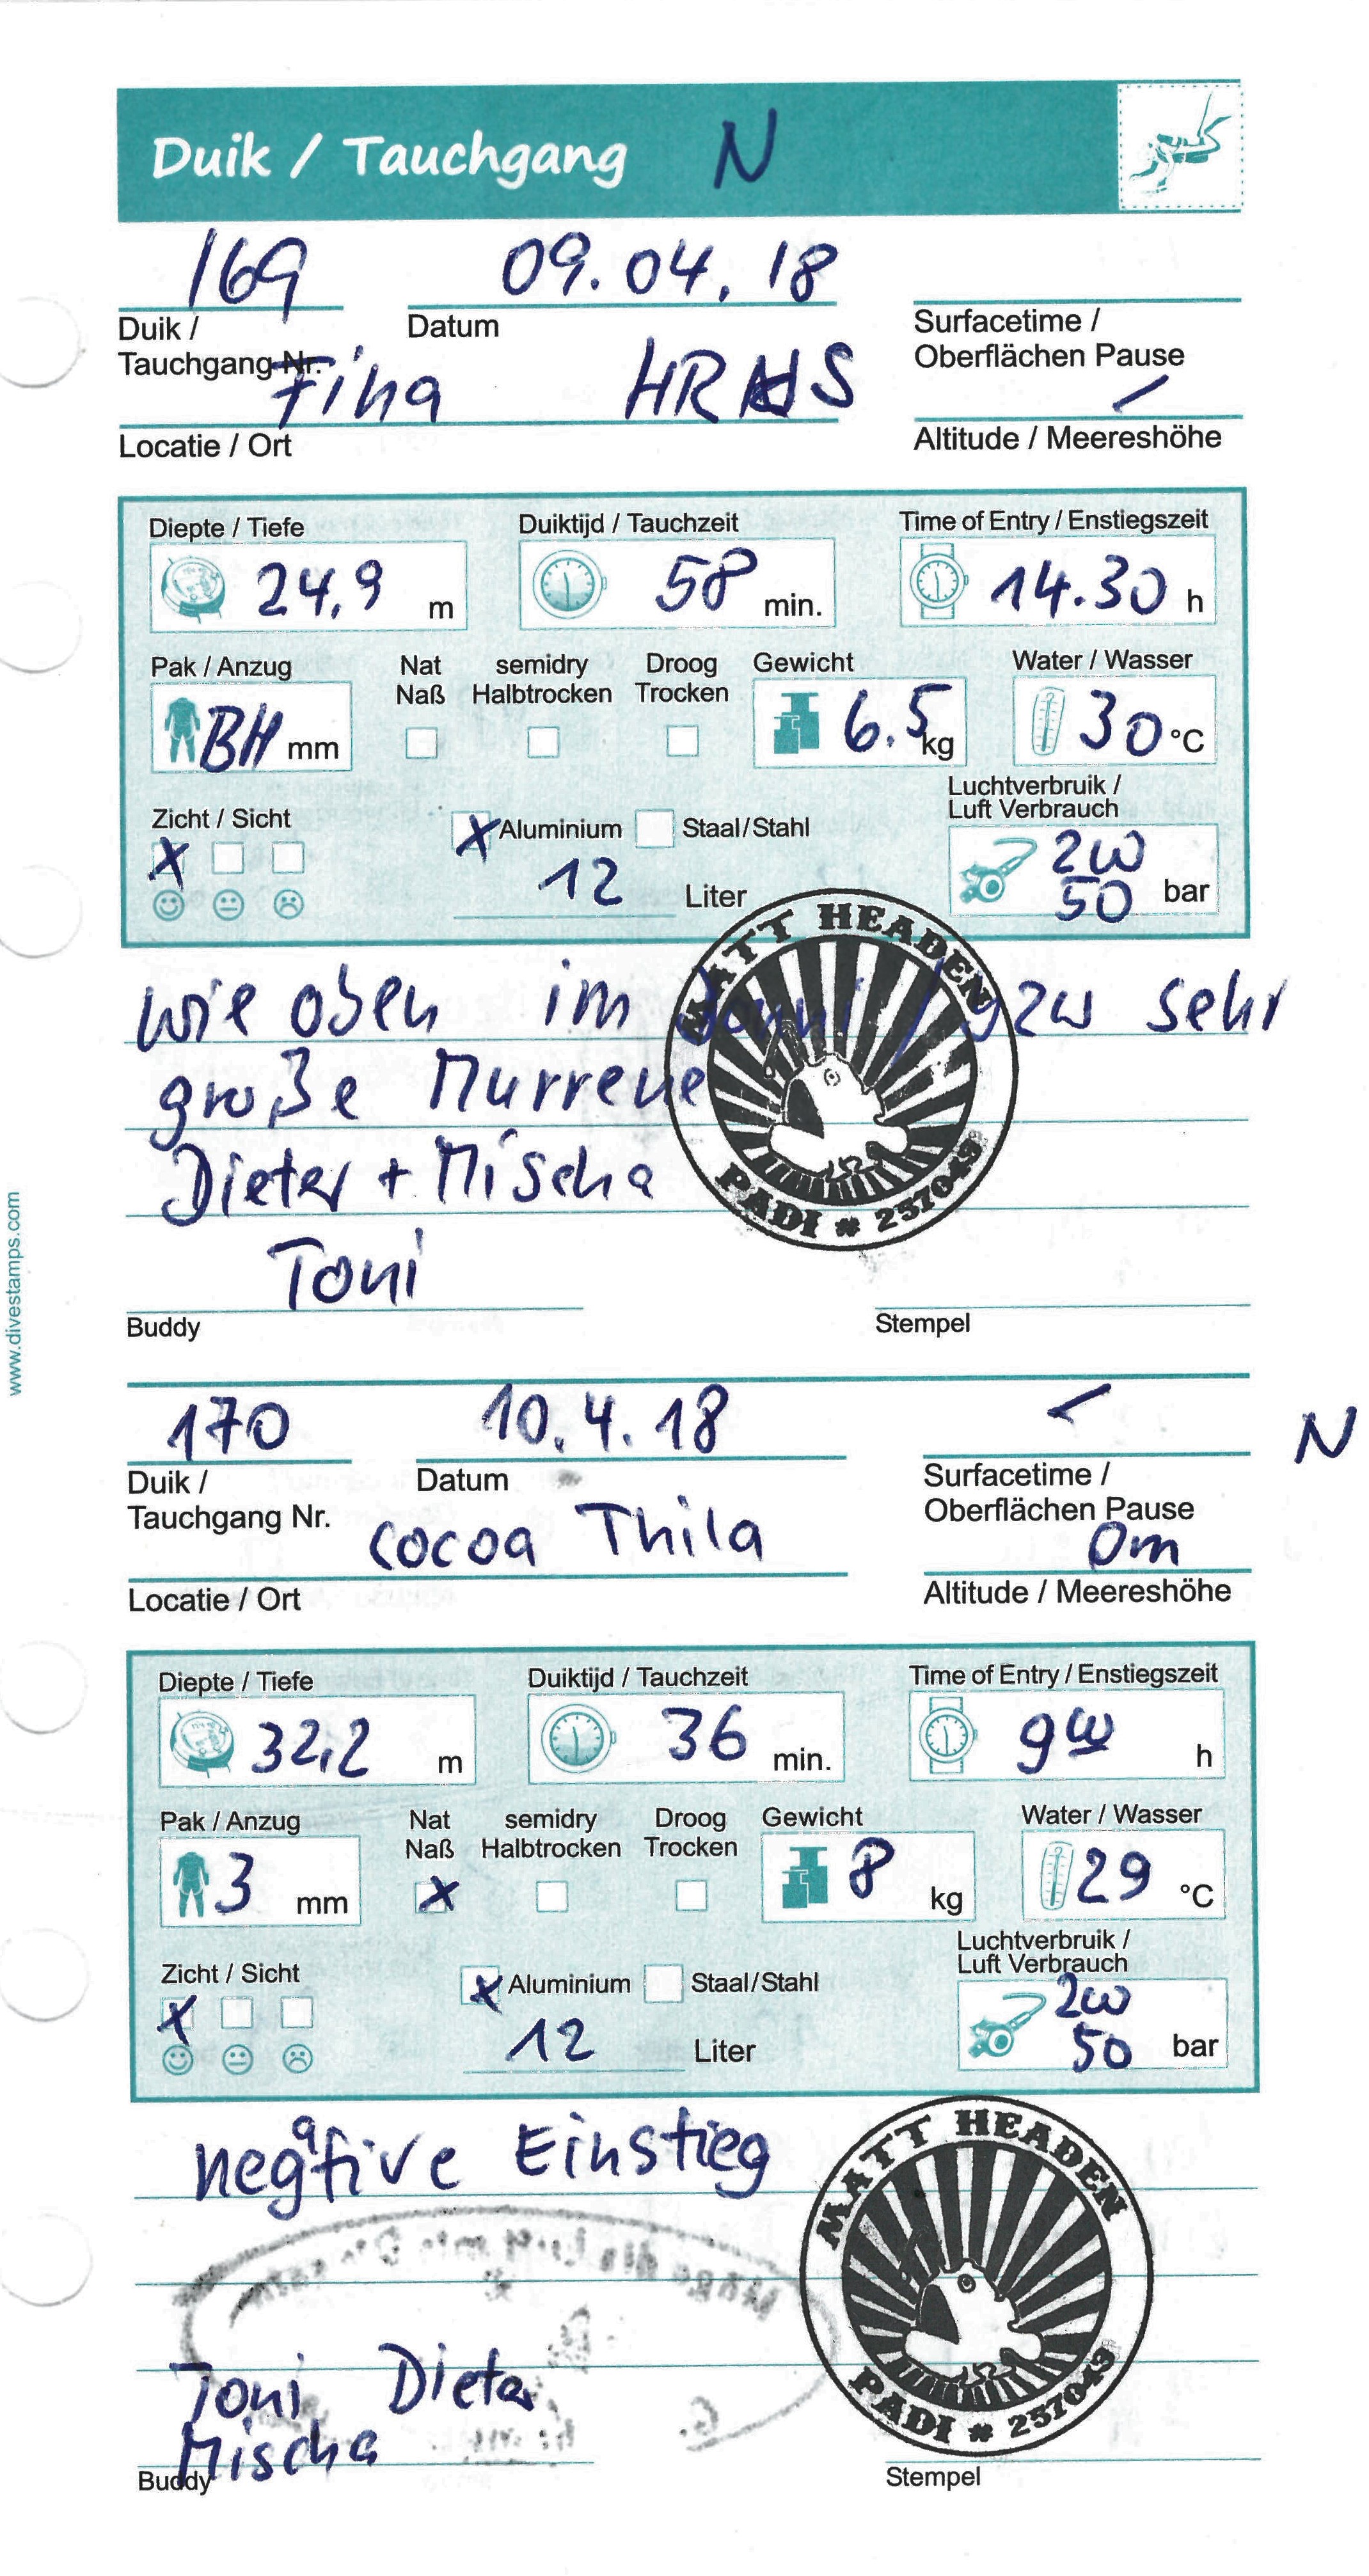 Duik / Tauchgang N
169 09.04.18
Duik / Datum Surfacetime /
Tauchgang Nr. Oberflächen Pause
Fiha
Locatie / Ort Altitude / Meereshöhe
Diepte / Tiefe Duiktijd / Tauchzeit Time of Entry / Enstiegszeit
24,9 m 58 min. 14.30 h
Pak / Anzug Nat semidry Droog Gewicht Water / Wasser
Naß Halbtrocken Trocken
BH mm 6.5 kg 30 °C
Luchtverbruik /
Zicht / Sicht X Aluminium Staal/Stahl Luft Verbrauch
X 12 Liter 200
50 bar
wie oben im / gzw sehr
große Murrene
Dieter + Mischa
Toni
MATT HEADEN
PADI * 257049
Buddy Stempel
www.divestamps.com
170 10.4.18 N
Duik / Datum Surfacetime /
Tauchgang Nr. Oberflächen Pause
cocoa Thila 0m
Locatie / Ort Altitude / Meereshöhe
Diepte / Tiefe Duiktijd / Tauchzeit Time of Entry / Enstiegszeit
32,2 m 36 min. 9 00 h
Pak / Anzug Nat semidry Droog Gewicht Water / Wasser
Naß Halbtrocken Trocken
3 mm X 8 kg 29 °C
Luchtverbruik /
Zicht / Sicht X Aluminium Staal/Stahl Luft Verbrauch
X 12 Liter 200
50 bar
negative Einstieg
MATT HEADEN
PADI * 257049
Toni Dieter
Mischa
Buddy Stempel